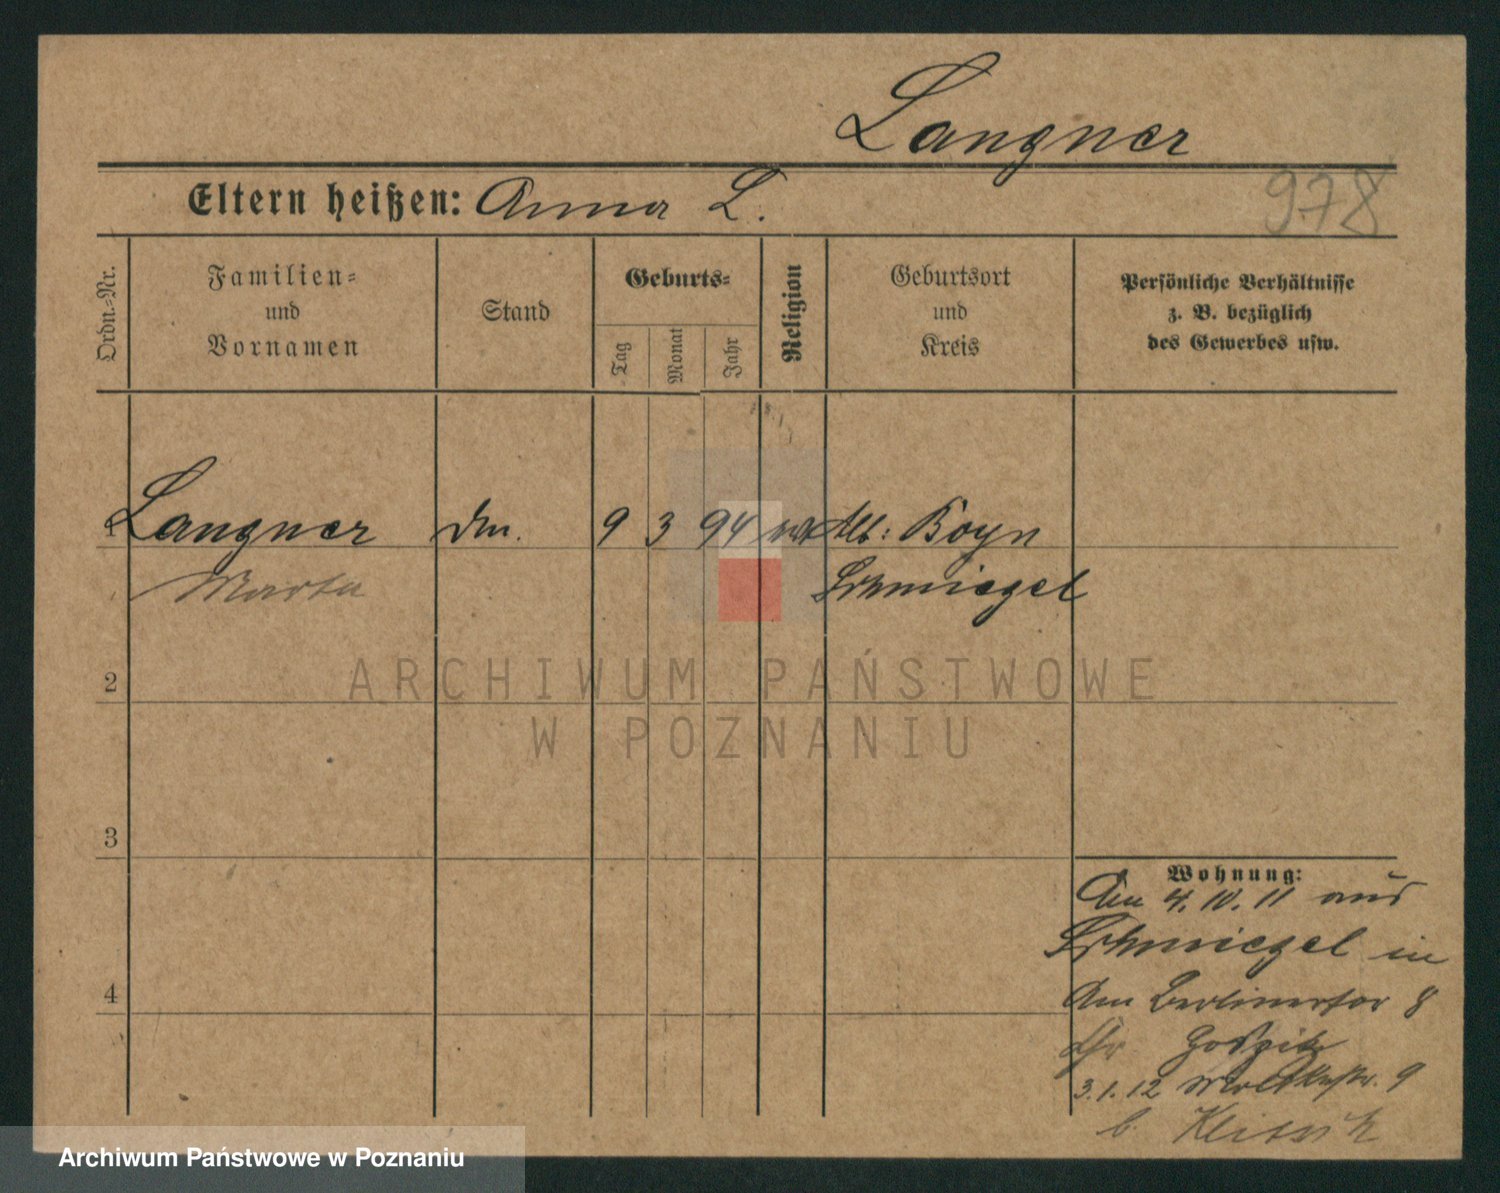 Langner
Eltern heißen: Anna L.
978
Ordn.-Nr.
Familien-
und
Vornamen
Stand
Geburts-
Tag
Monat
Jahr
Religion
Geburtsort
und
Kreis
Persönliche Verhältnisse
z. B. bezüglich
des Gewerbes usw.
1 Langner 9 3 94 Alt: Boyn
Marta Schmiegel
2
3
4
Wohnung:
Am 4. 10. 11 aus
Schmiegel in
Am Berlinertor 8
Hospitz
3. 1. 12 Moltkestr. 9
b.
ARCHIWUM PAŃSTWOWE
W POZNANIU
Archiwum Państwowe w Poznaniu